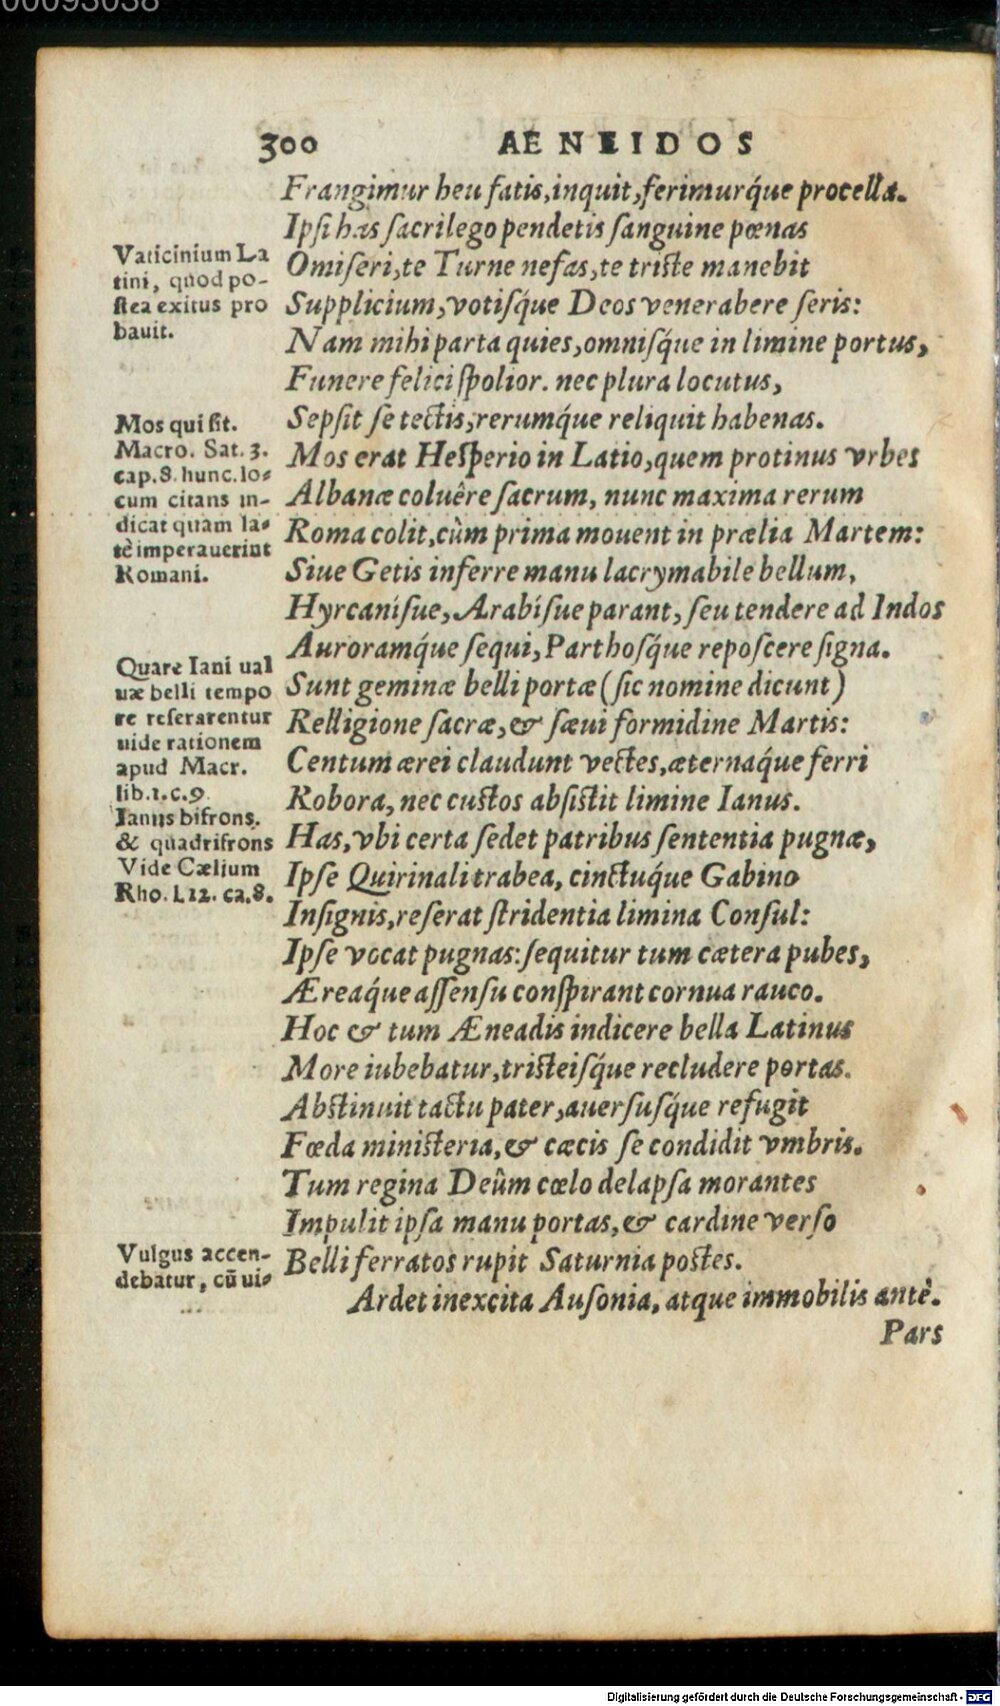 00093038
300 AENEIDOS
Frangimur heu fatis, inquit, ferimurq́ue procella.
Ipsi has sacrilego pendetis sanguine pœnas
O miseri, te Turne nefas, te triste manebit
Supplicium, votisq́ue Deos venerabere seris:
Nam mihi parta quies, omnisq́ue in limine portus,
Funere felici spolior. nec plura locutus,
Sepsit se tectis, rerumq́ue reliquit habenas.
Mos erat Hesperio in Latio, quem protinus vrbes
Albanæ coluêre sacrum, nunc maxima rerum
Roma colit, cùm prima mouent in prælia Martem:
Siue Getis inferre manu lacrymabile bellum,
Hyrcanísue, Arabísue parant, seu tendere ad Indos
Auroramq́ue sequi, Parthosq́ue reposcere signa.
Sunt geminæ belli portæ (sic nomine dicunt)
Relligione sacræ, & sæui formidine Martis:
Centum ærei claudunt vectes, æternaq́ue ferri
Robora, nec custos absistit limine Ianus.
Has, vbi certa sedet patribus sententia pugnæ,
Ipse Quirinali trabea, cinctuq́ue Gabino
Insignis, reserat stridentia limina Consul:
Ipse vocat pugnas: sequitur tum cætera pubes,
Æreaq́ue assensu conspirant cornua rauco.
Hoc & tum Æneadis indicere bella Latinus
More iubebatur, tristeisq́ue recludere portas.
Abstinuit tactu pater, auersusq́ue refugit
Fœda ministeria, & cæcis se condidit vmbris.
Tum regina Deûm cœlo delapsa morantes
Impulit ipsa manu portas, & cardine verso
Belli ferratos rupit Saturnia postes.
Ardet inexcita Ausonia, atque immobilis antè.
Pars
Vaticinium La
tini, quod po-
stea exitus pro
bauit.
Mos qui sit.
Macro. Sat. 3.
cap. 8. hunc. lo-
cum citans in-
dicat quam la-
tè imperauerint
Romani.
Quare Iani ual
uæ belli tempo
re reserarentur
uide rationem
apud Macr.
lib. 1. c. 9.
Ianus bifrons.
& quadrifrons
Vide Cælium
Rho. l. 12. ca. 8.
Vulgus accen-
debatur, cū ui-
Digitalisierung gefördert durch die Deutsche Forschungsgemeinschaft - DFG